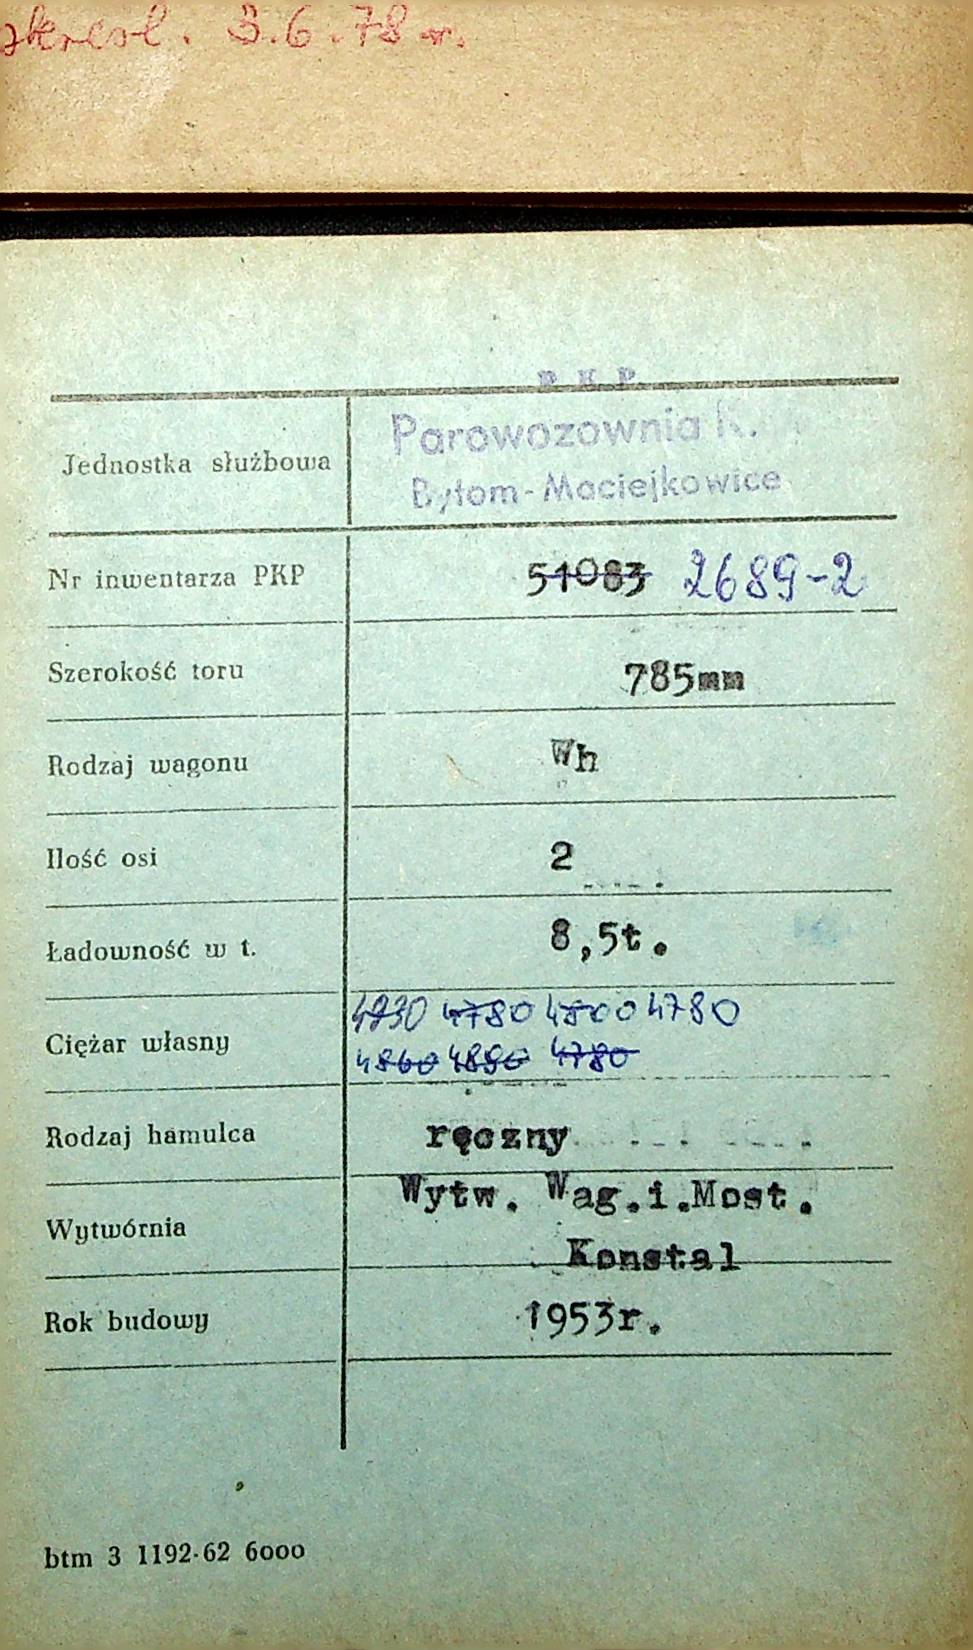 skreśl. 3.6.78 r.
P K P
Jednostka służbowa Parowozownia K.
Bytom-Maciejkowice
Nr inwentarza PKP 51083 2689-2
Szerokość toru 785mm
Rodzaj wagonu Wh
Ilość osi 2
Ładowność w t. 8,5t.
4780 4800 4780
Ciężar własny 4860 4890 4780
Rodzaj hamulca ręczny
Wytw. Wag.i.Most.
Wytwórnia Konstal
Rok budowy 1953r.
btm 3 1192-62 6000